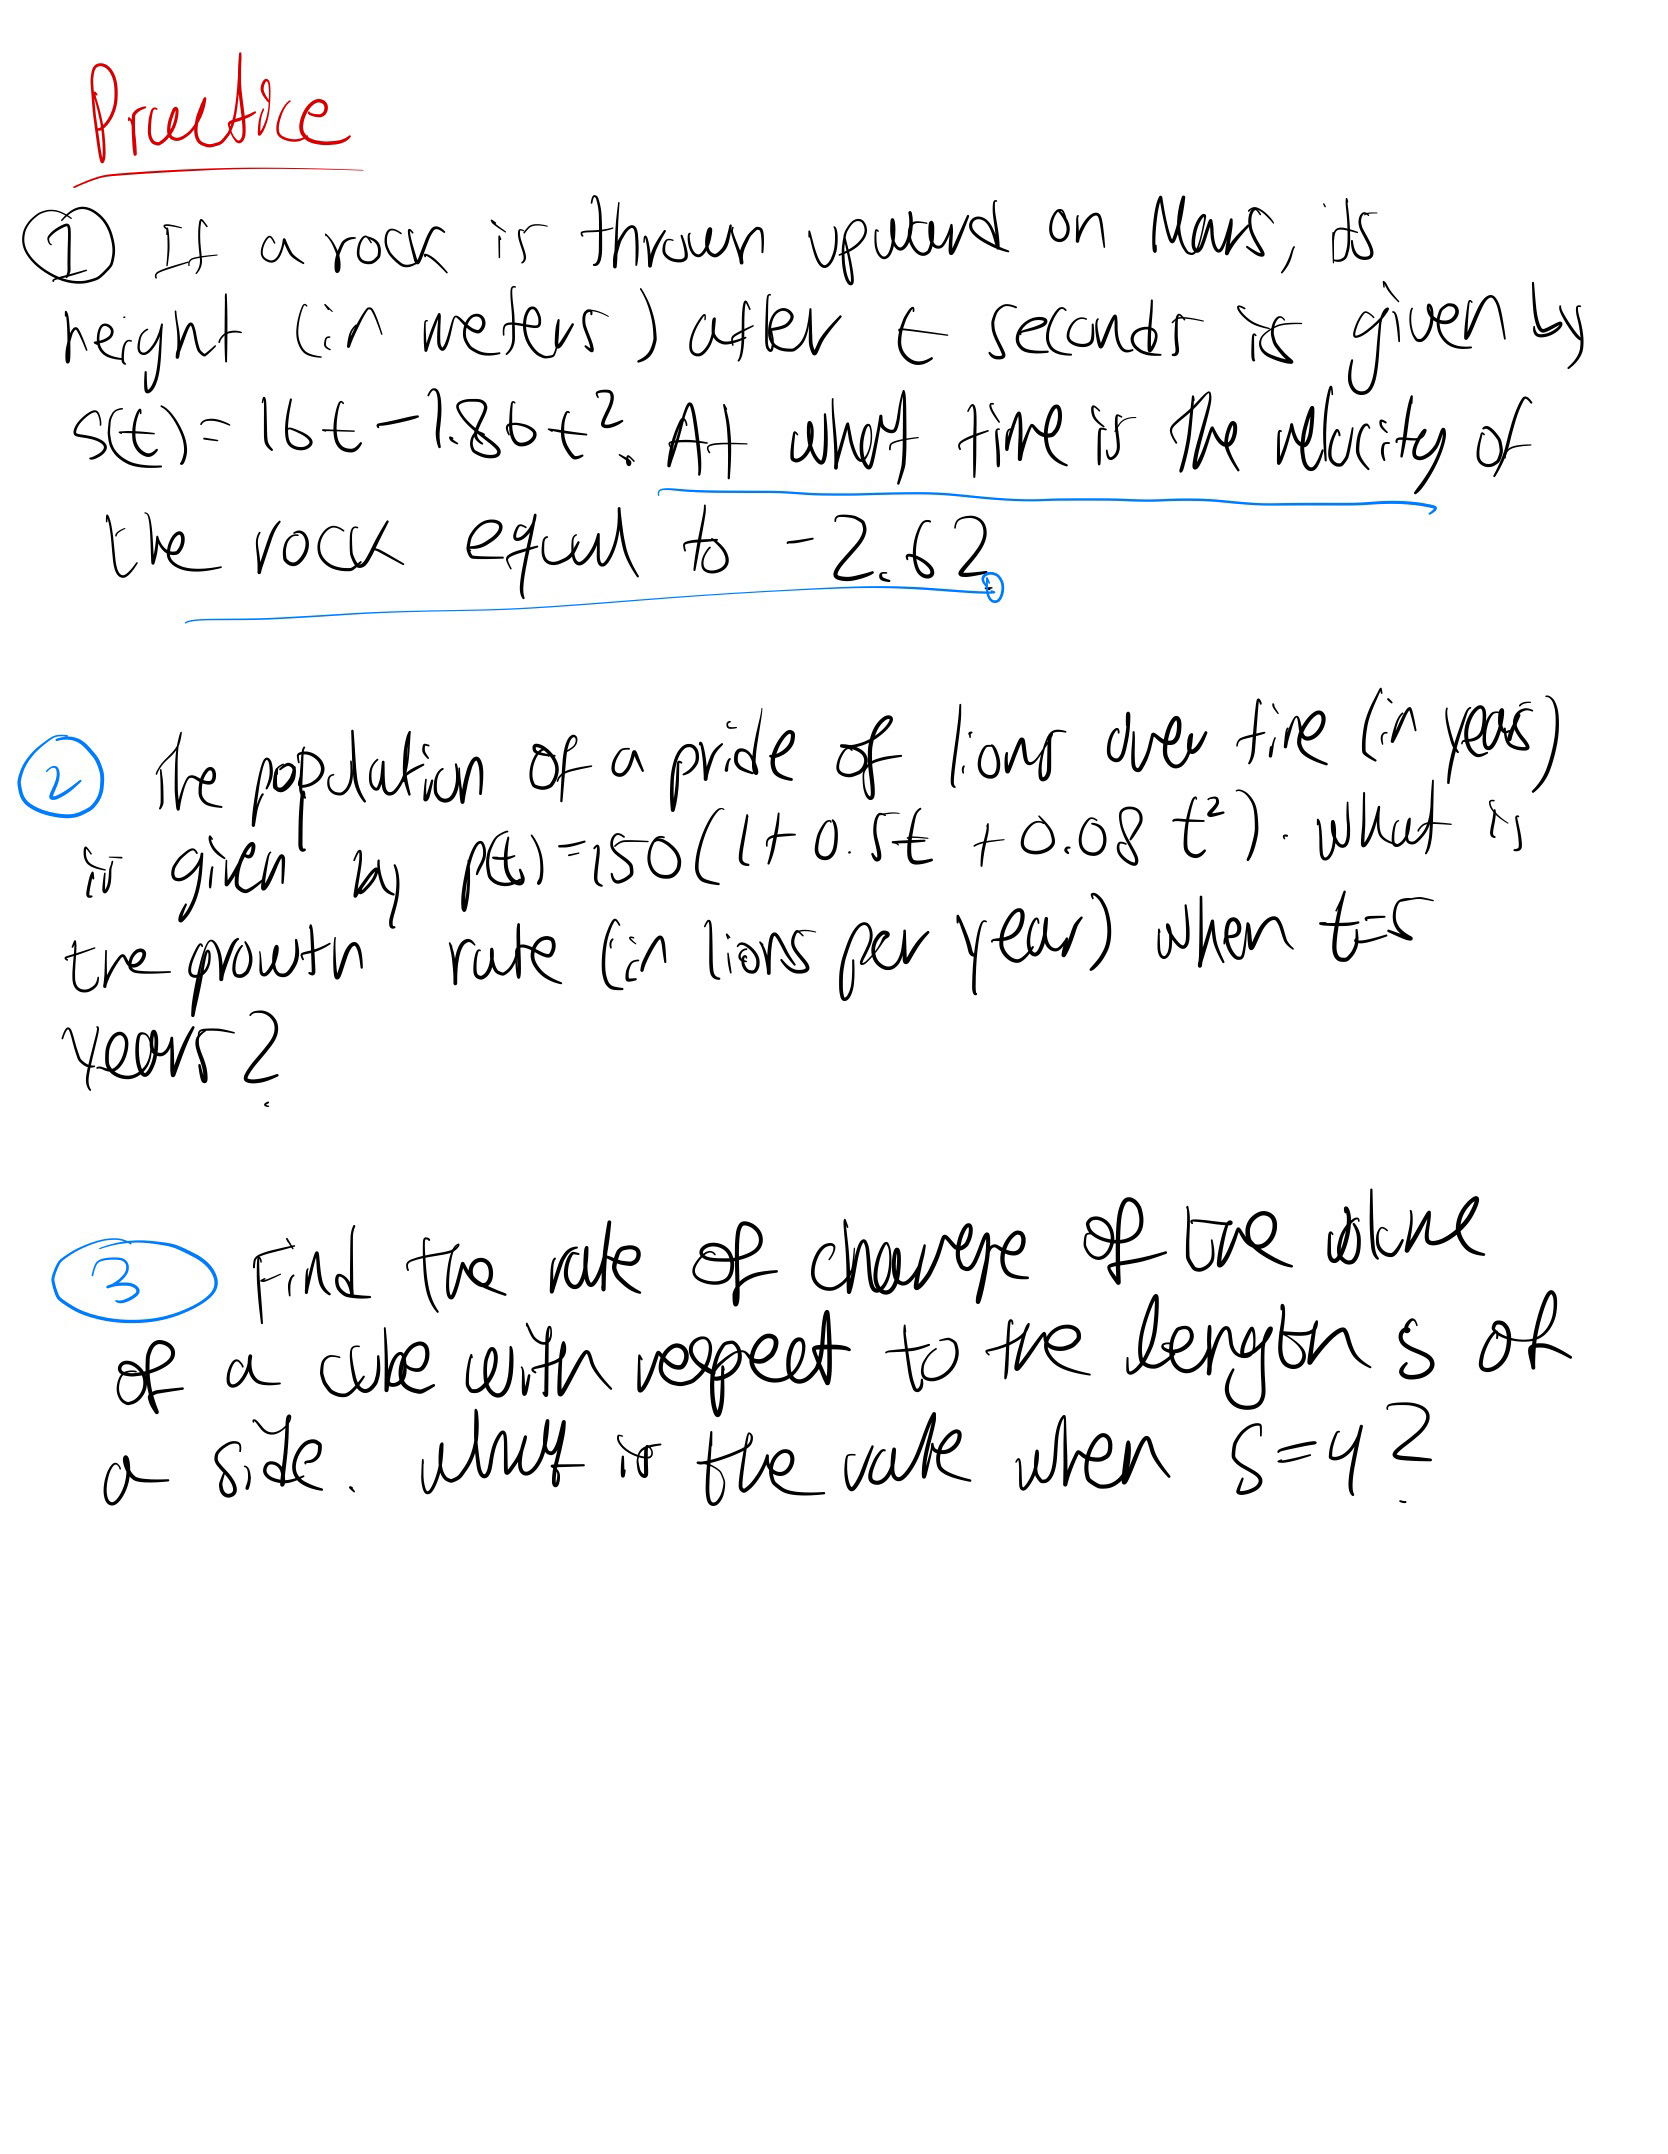 Practice
① If a rock is thrown upward on Mars, its
height (in meters) after t seconds is given by
s(t) = 16t - 1.86t². At what time is the velocity of
the rock equal to -2.62.
② The population of a pride of lions over time (in years)
is given by p(t) = 150(1 + 0.5t + 0.08 t²). What is
the growth rate (in lions per year) when t=5
years?
③ Find the rate of change of the volume
of a cube with respect to the length s of
a side. What is the rate when s=4?